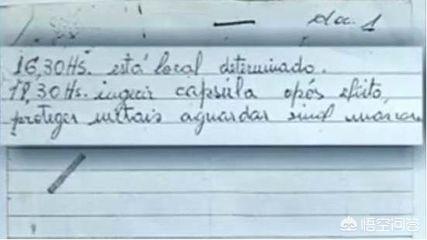 da. 1
16,30 Hs. está local determinado.
18,30 Hs. ingerir capsúla após efeito,
proteger metais aguardar sinal máscara
悟空问答